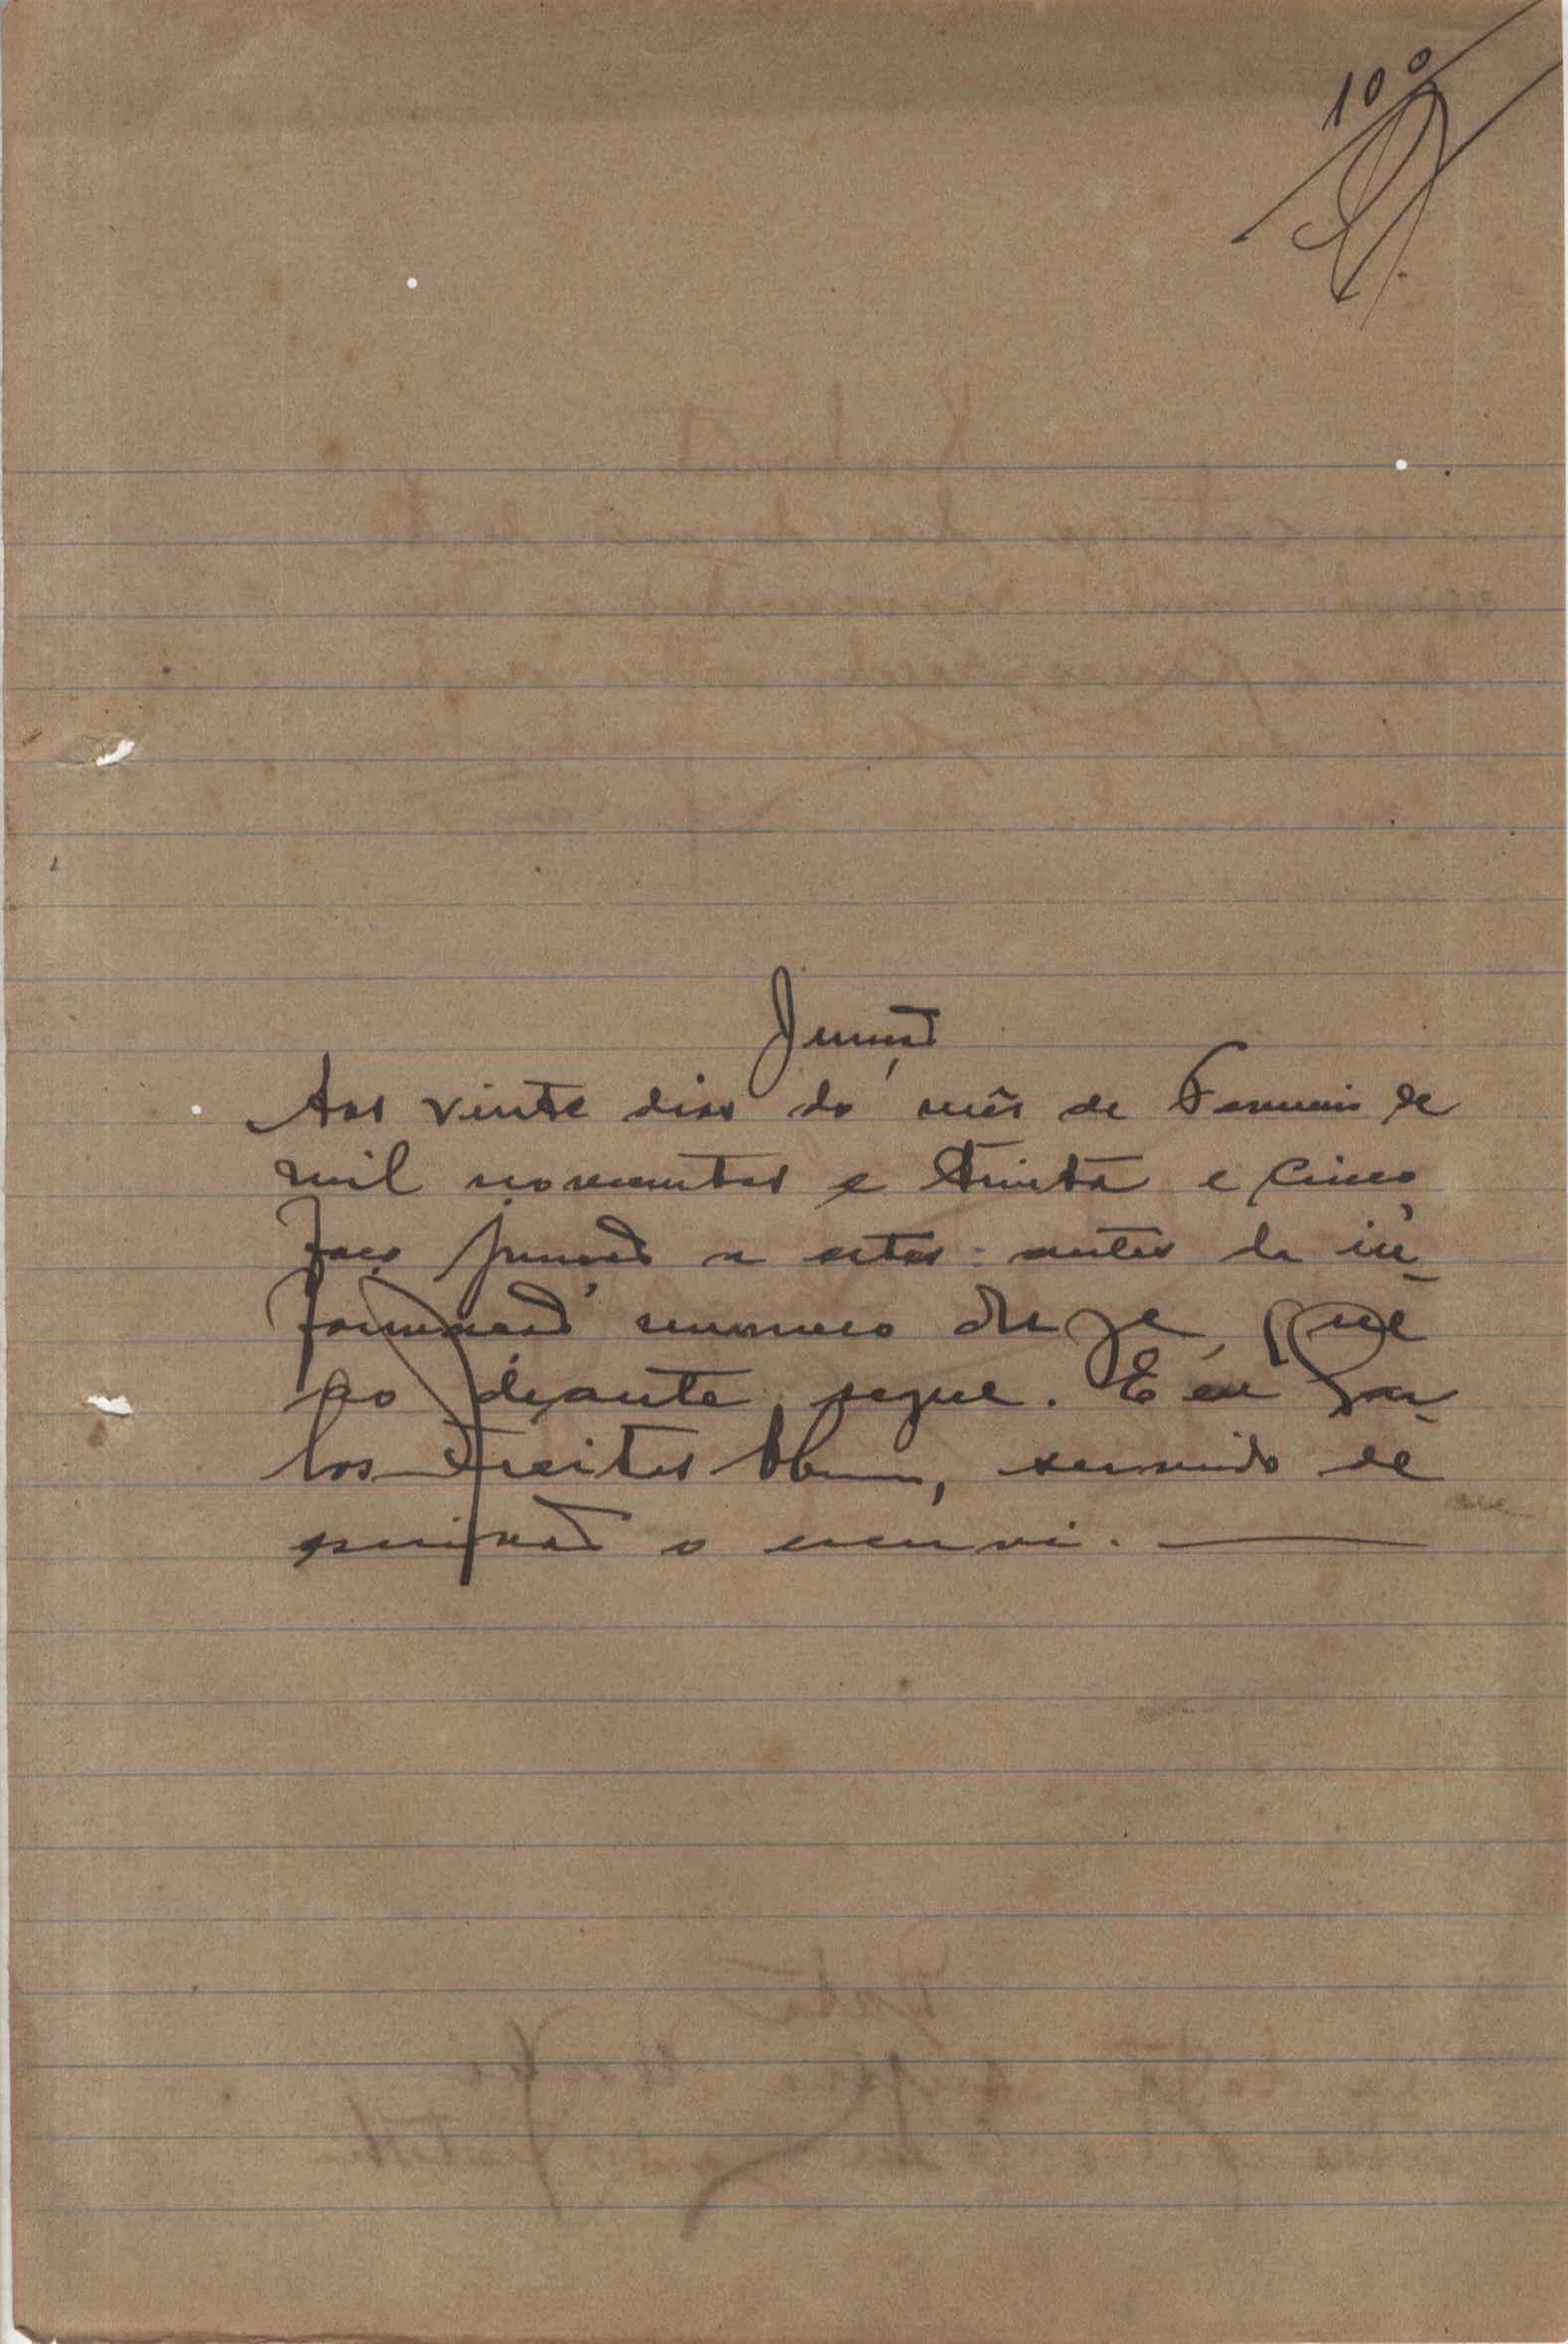 10
Junção
Aos vinte dias do mês de Fevereiro de
mil novecentos e trinta e cinco,
faço junção a estes autos da in-
formação numero onze, que
ao deante segue. E eu Car-
los Freitas, servindo de
escrivão o escrevi.